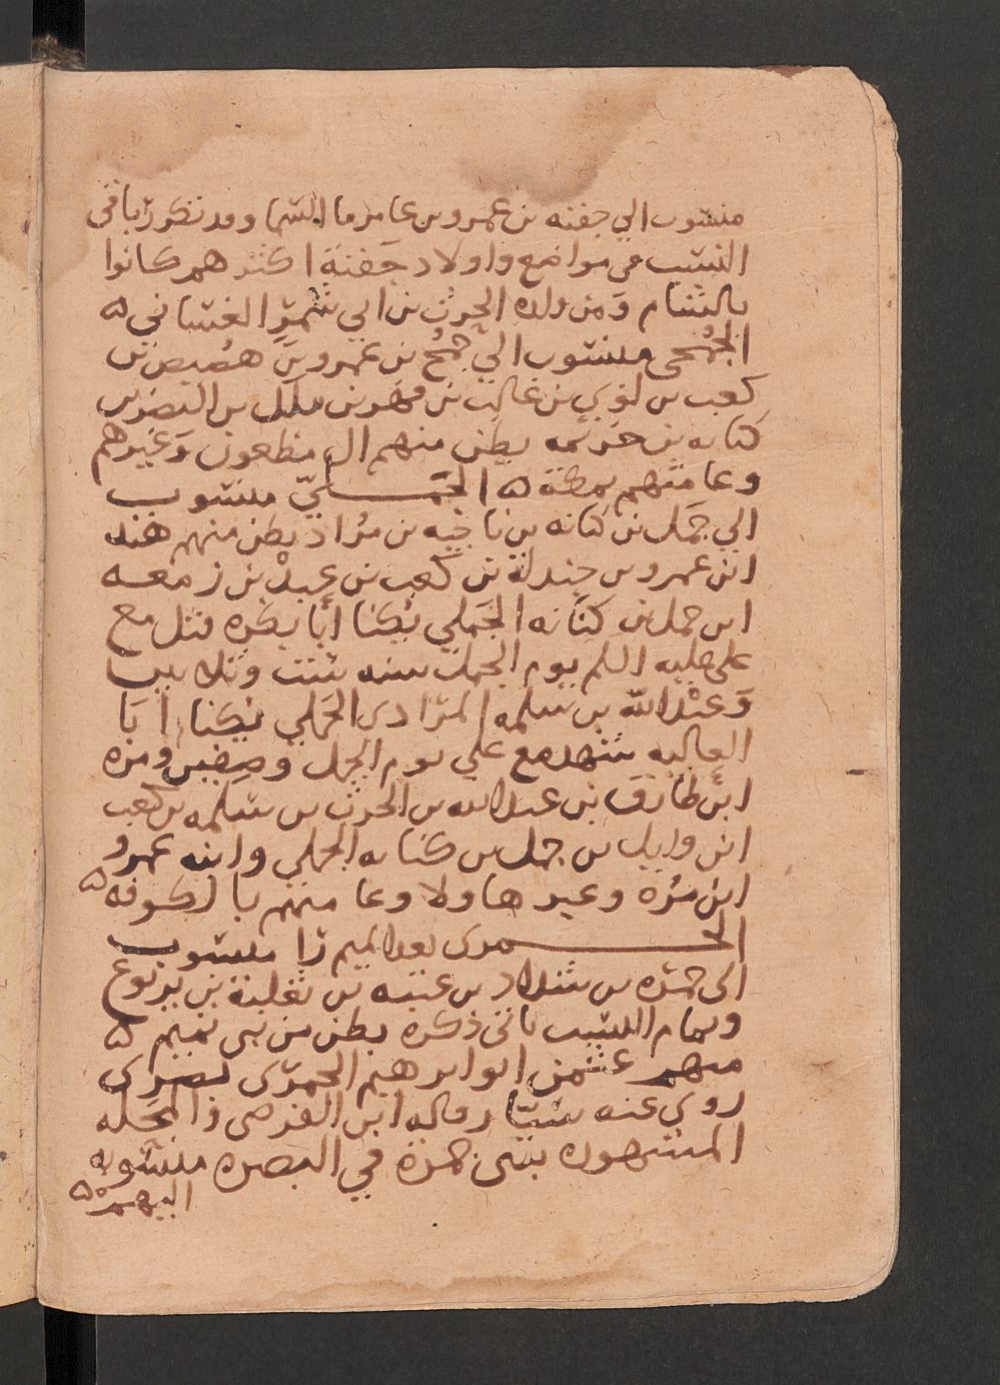 منسوب الي جفنه بن عمرو بن عامر ما السما وقد تكرر باقى
النسب في مواضع واولاد جَفنة اكثرهم كانوا
بالشام وَمن ولده الحرث بن ابي شمّر الغساني ه
الجُمحى منسوب الي جُمَح بن عمرو بن هُصيص بن
كعب بن لوي بن غالب بن فهر بن ملك بن النضر بن
كنانه بن خزيمه بطن منهم ال مظعون وَغيرهم
وعامتهم بمكة ه الجَمَليّ منسوب
الي جَمَل بن كنانه بن ناجيه بن مُراد بطن منهم هند
ابن عمرو بن جندلة بن كعب بن عبد بن زمعه
ابن جمل بن كنانه الجَملي يُكنا أبا بكره قتل مع
علي عليه السلم يوم الجمل سنه ست وثلاثين
وَعبْدالله بن سلمه المرَادى الجَملي يُكنا أبَا
العاليه شهد مع علي يوم الجمل وصِفين ومره
ابن طارق بن عبدالله بن الحرث بن سلمه بن كعب
ابن وايل بن جمل بن كنانه الجملي وابنه عمرو
ابن مُره وغير هاولا وعامتهم بالكوفه ه
الجمرى بعد الميم رَا منسوب
الى جمَره بن شداد بن عبيد بن ثعلبة بن يَربوع
وتمام النسب ياتى ذكره بطن من بنى تميم ه
منهم عثمن ابو ابرهيم الجمرى بصرى
روى عنه قاله ابن الفرضى ذا المحَله
المشهوره ببنى جمرَة في البصره منسوبه
اليهم ه